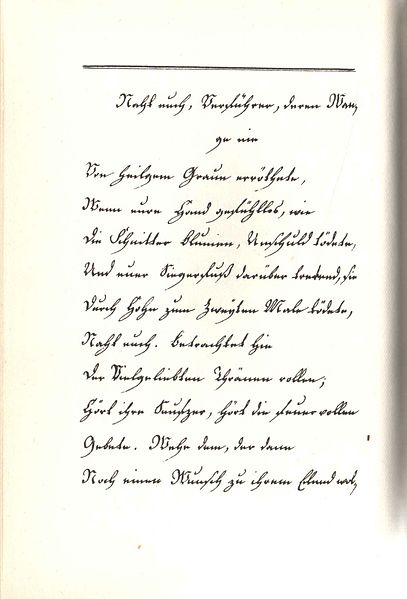 Naht euch, Verführer, deren Wan⸗
ge nie
Von heilgem Graun erröthete,
Wenn eure Hand gefühllos, wie
Die Schnitter Blumen, Unschuld tödete,
Und euer Siegerfuß darüber tretend, sie
Durch Hohn zum Zweyten Male tödete,
Naht euch. Betrachtet hie
Der Vielgeliebten Thränen rollen;
Hört ihre Seufzer, hört die feuervollen
Gebete. Wehe dem, der dann
Noch einen Wunsch zu ihrem Elend wol⸗